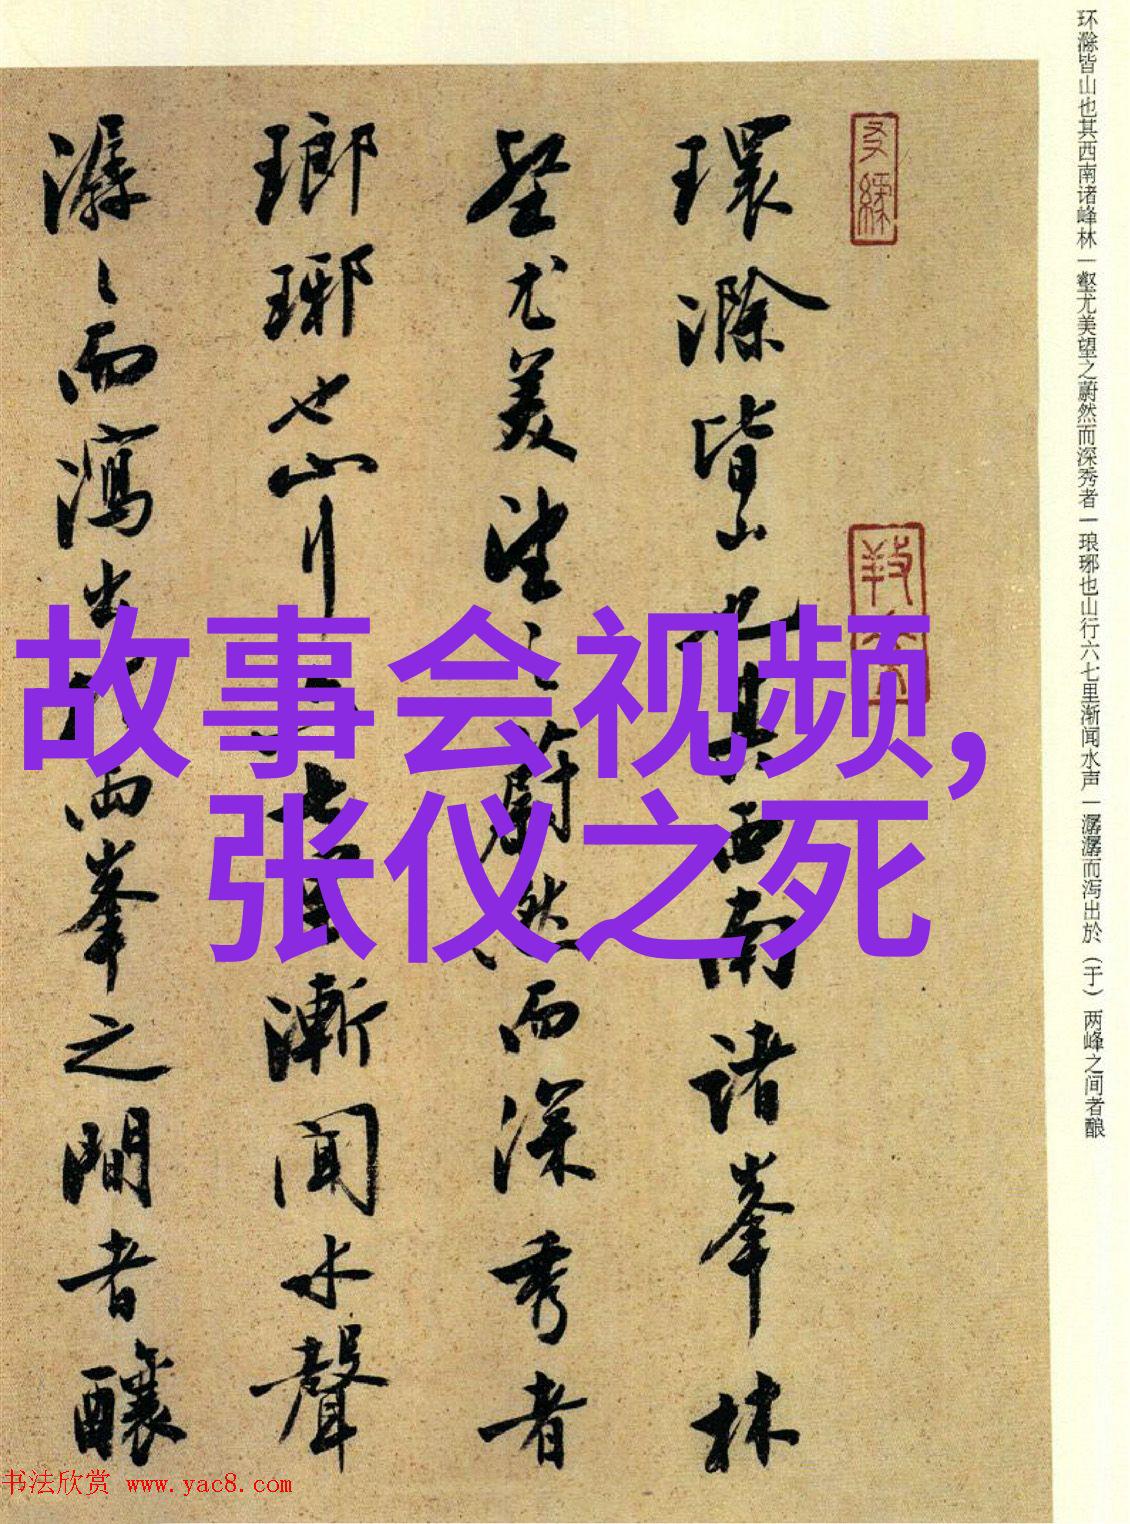 环滁皆山也其西南诸峰林一壑尤美望之蔚然而深秀者一琅琊也山行六七里渐闻水声一潺潺而泻出於（于）两峰之间者酿
環滁皆山也其西南诸峯林
壑尤美望之蔚然而深秀者
瑯琊也山行六七里漸闻水聲
潺〻而瀉出于两峯之間者釀
故事会视频，
张仪之死
书法欣赏 www.yac8.com